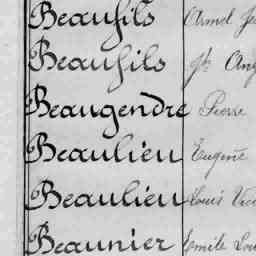 Beaufils
Beaufils
Beaugendre Pierre
Beaulieu Eugène
Beaulieu Louis
Beaunier Emile